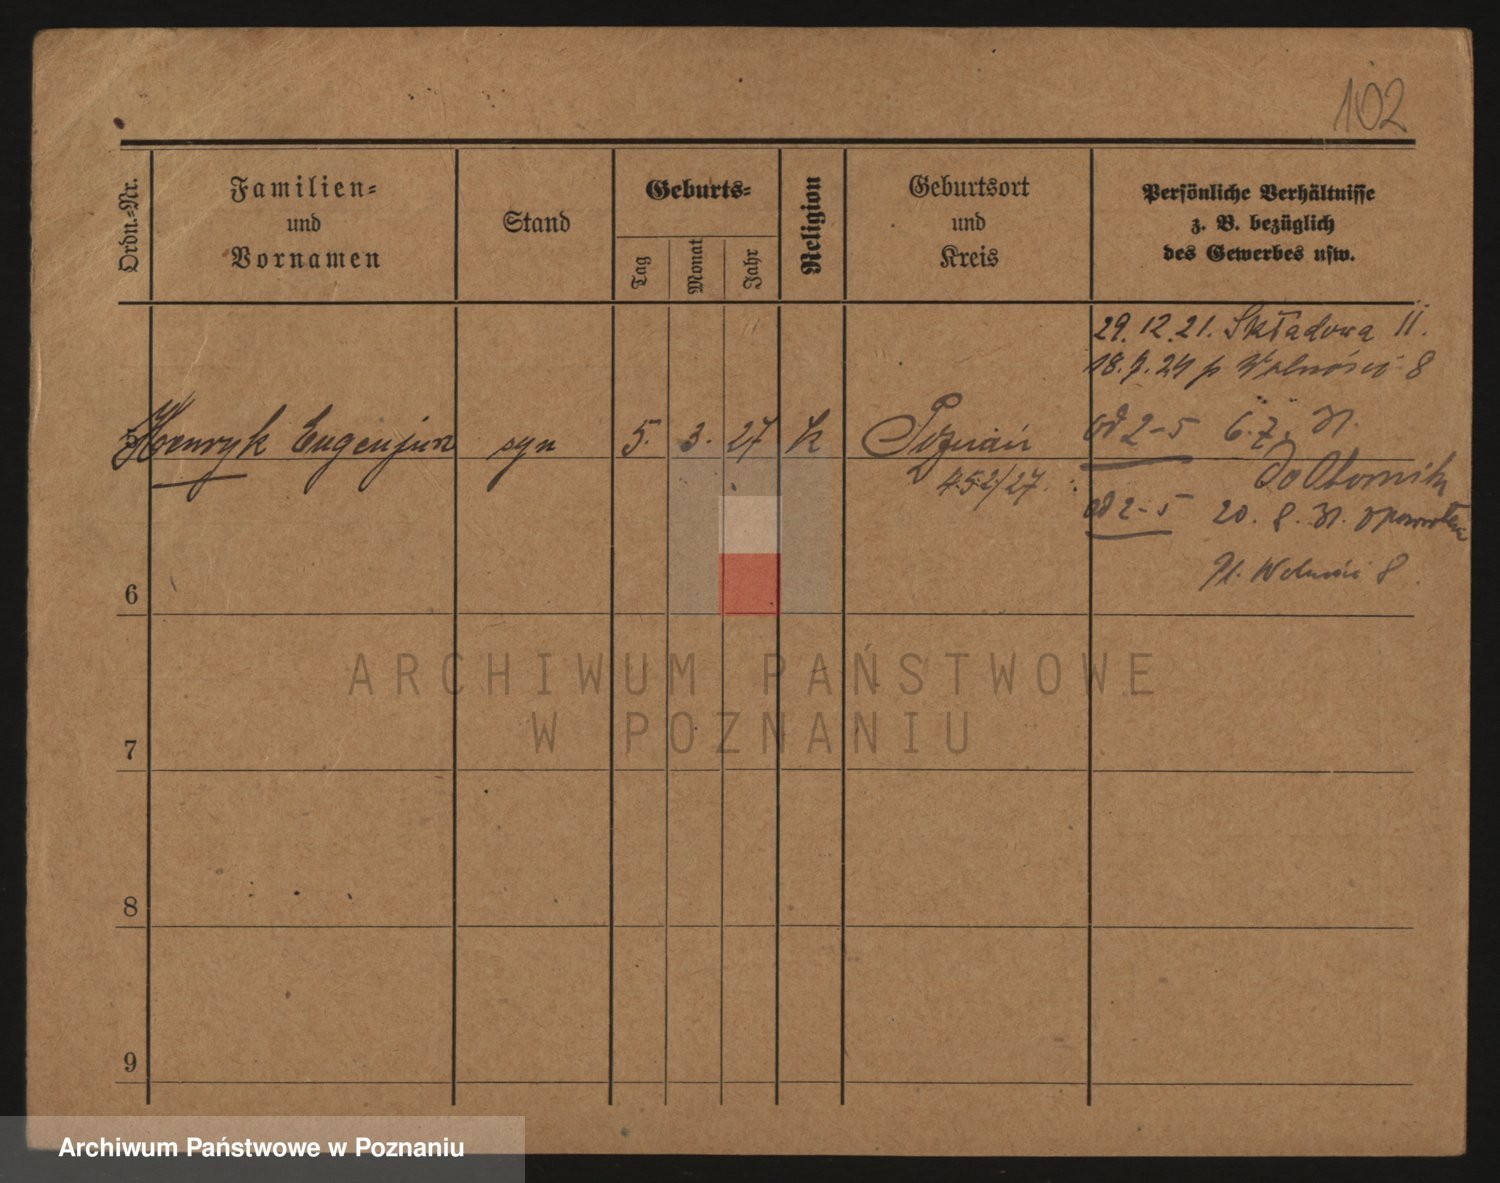 102
Ordn.-Nr.
Familien-
und
Vornamen
Stand
Geburts-
Tag
Monat
Jahr
Religion
Geburtsort
und
Kreis
Persönliche Verhältnisse
z. B. bezüglich
des Gewerbes usw.
29.12.21. Składowa 11.
18.9.24 p Wolności 8
5 Henryk Eugenjusz syn 5. 3. 27 k Poznań
452/27.
od 2-5 6.7. 31.
do Obornik
od 2-5 20. 8. 31. z powrotem
Pl. Wolności 8.
6
7
8
9
ARCHIWUM PAŃSTWOWE
W POZNANIU
Archiwum Państwowe w Poznaniu